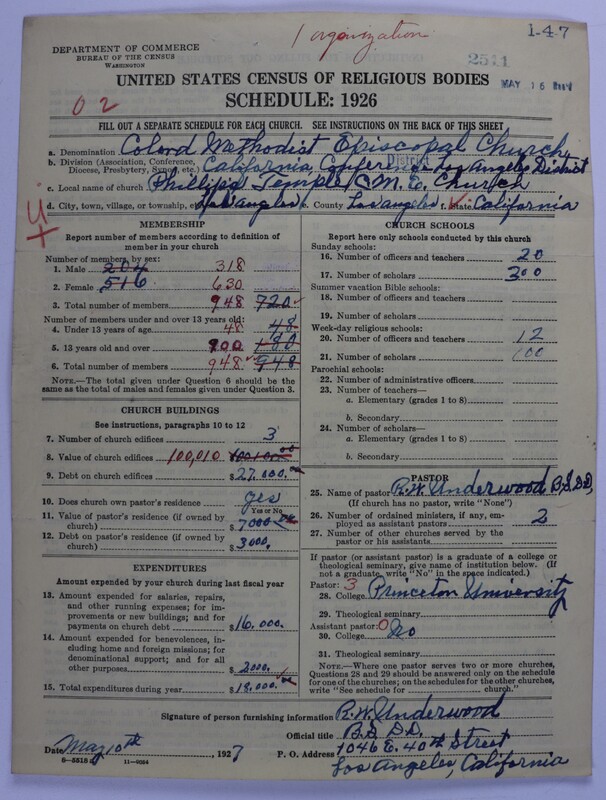 1 organization
1-4-7
DEPARTMENT OF COMMERCE
BUREAU OF THE CENSUS
WASHINGTON
2511
MAY 16
UNITED STATES CENSUS OF RELIGIOUS BODIES
SCHEDULE: 1926
0 2
FILL OUT A SEPARATE SCHEDULE FOR EACH CHURCH. SEE INSTRUCTIONS ON THE BACK OF THIS SHEET
a. Denomination Colord Methodist Episcopal Church
b. Division (Association, Conference, Diocese, Presbytery, Synod, etc.) California Conference Los Angeles District
District
c. Local name of church Phillips Temple C.M.E. Church
d. City, town, village, or township, etc. Los Angeles e. County Los angeles f. State California
MEMBERSHIP
Report number of members according to definition of member in your church
Number of members, by sex:
1. Male 204 318
2. Female 516 630
3. Total number of members 948 720
Number of members under and over 13 years old:
4. Under 13 years of age 48 48
5. 13 years old and over 900 180
6. Total number of members 948 948
NOTE.—The total given under Question 6 should be the same as the total of males and females given under Question 3.
CHURCH BUILDINGS
See instructions, paragraphs 10 to 12
7. Number of church edifices 3
8. Value of church edifices 100,010
9. Debt on church edifices $27,000.00
10. Does church own pastor's residence yes
Yes or No
11. Value of pastor's residence (if owned by church) $7000
12. Debt on pastor's residence (if owned by church) $3000.
EXPENDITURES
Amount expended by your church during last fiscal year
13. Amount expended for salaries, repairs, and other running expenses; for improvements or new buildings; and for payments on church debt $16,000.
14. Amount expended for benevolences, including home and foreign missions; for denominational support; and for all other purposes $2000.
15. Total expenditures during year $18,000.
CHURCH SCHOOLS
Report here only schools conducted by this church
Sunday schools:
16. Number of officers and teachers 20
17. Number of scholars 300
Summer vacation Bible schools:
18. Number of officers and teachers
19. Number of scholars
Week-day religious schools:
20. Number of officers and teachers 12
21. Number of scholars 100
Parochial schools:
22. Number of administrative officers
23. Number of teachers—
a. Elementary (grades 1 to 8)
b. Secondary
24. Number of scholars—
a. Elementary (grades 1 to 8)
b. Secondary
PASTOR
25. Name of pastor R.W. Underwood B.S. D.D.
(If church has no pastor, write "None")
26. Number of ordained ministers, if any, employed as assistant pastors 2
27. Number of other churches served by the pastor or his assistants
If pastor (or assistant pastor) is a graduate of a college or theological seminary, give name of institution below. (If not a graduate, write "No" in the space indicated.)
Pastor: 3
28. College Princeton University
29. Theological seminary
Assistant pastor: 0
30. College No
31. Theological seminary
NOTE.—Where one pastor serves two or more churches, Questions 28 and 29 should be answered only on the schedule for one of the churches; on the schedules for the other churches, write "See schedule for church."
Signature of person furnishing information R.W. Underwood
Official title B.S. D.D.
Date May 10th, 1927 P. O. Address 1046 E. 40th Street
Los Angeles, California
11-9034